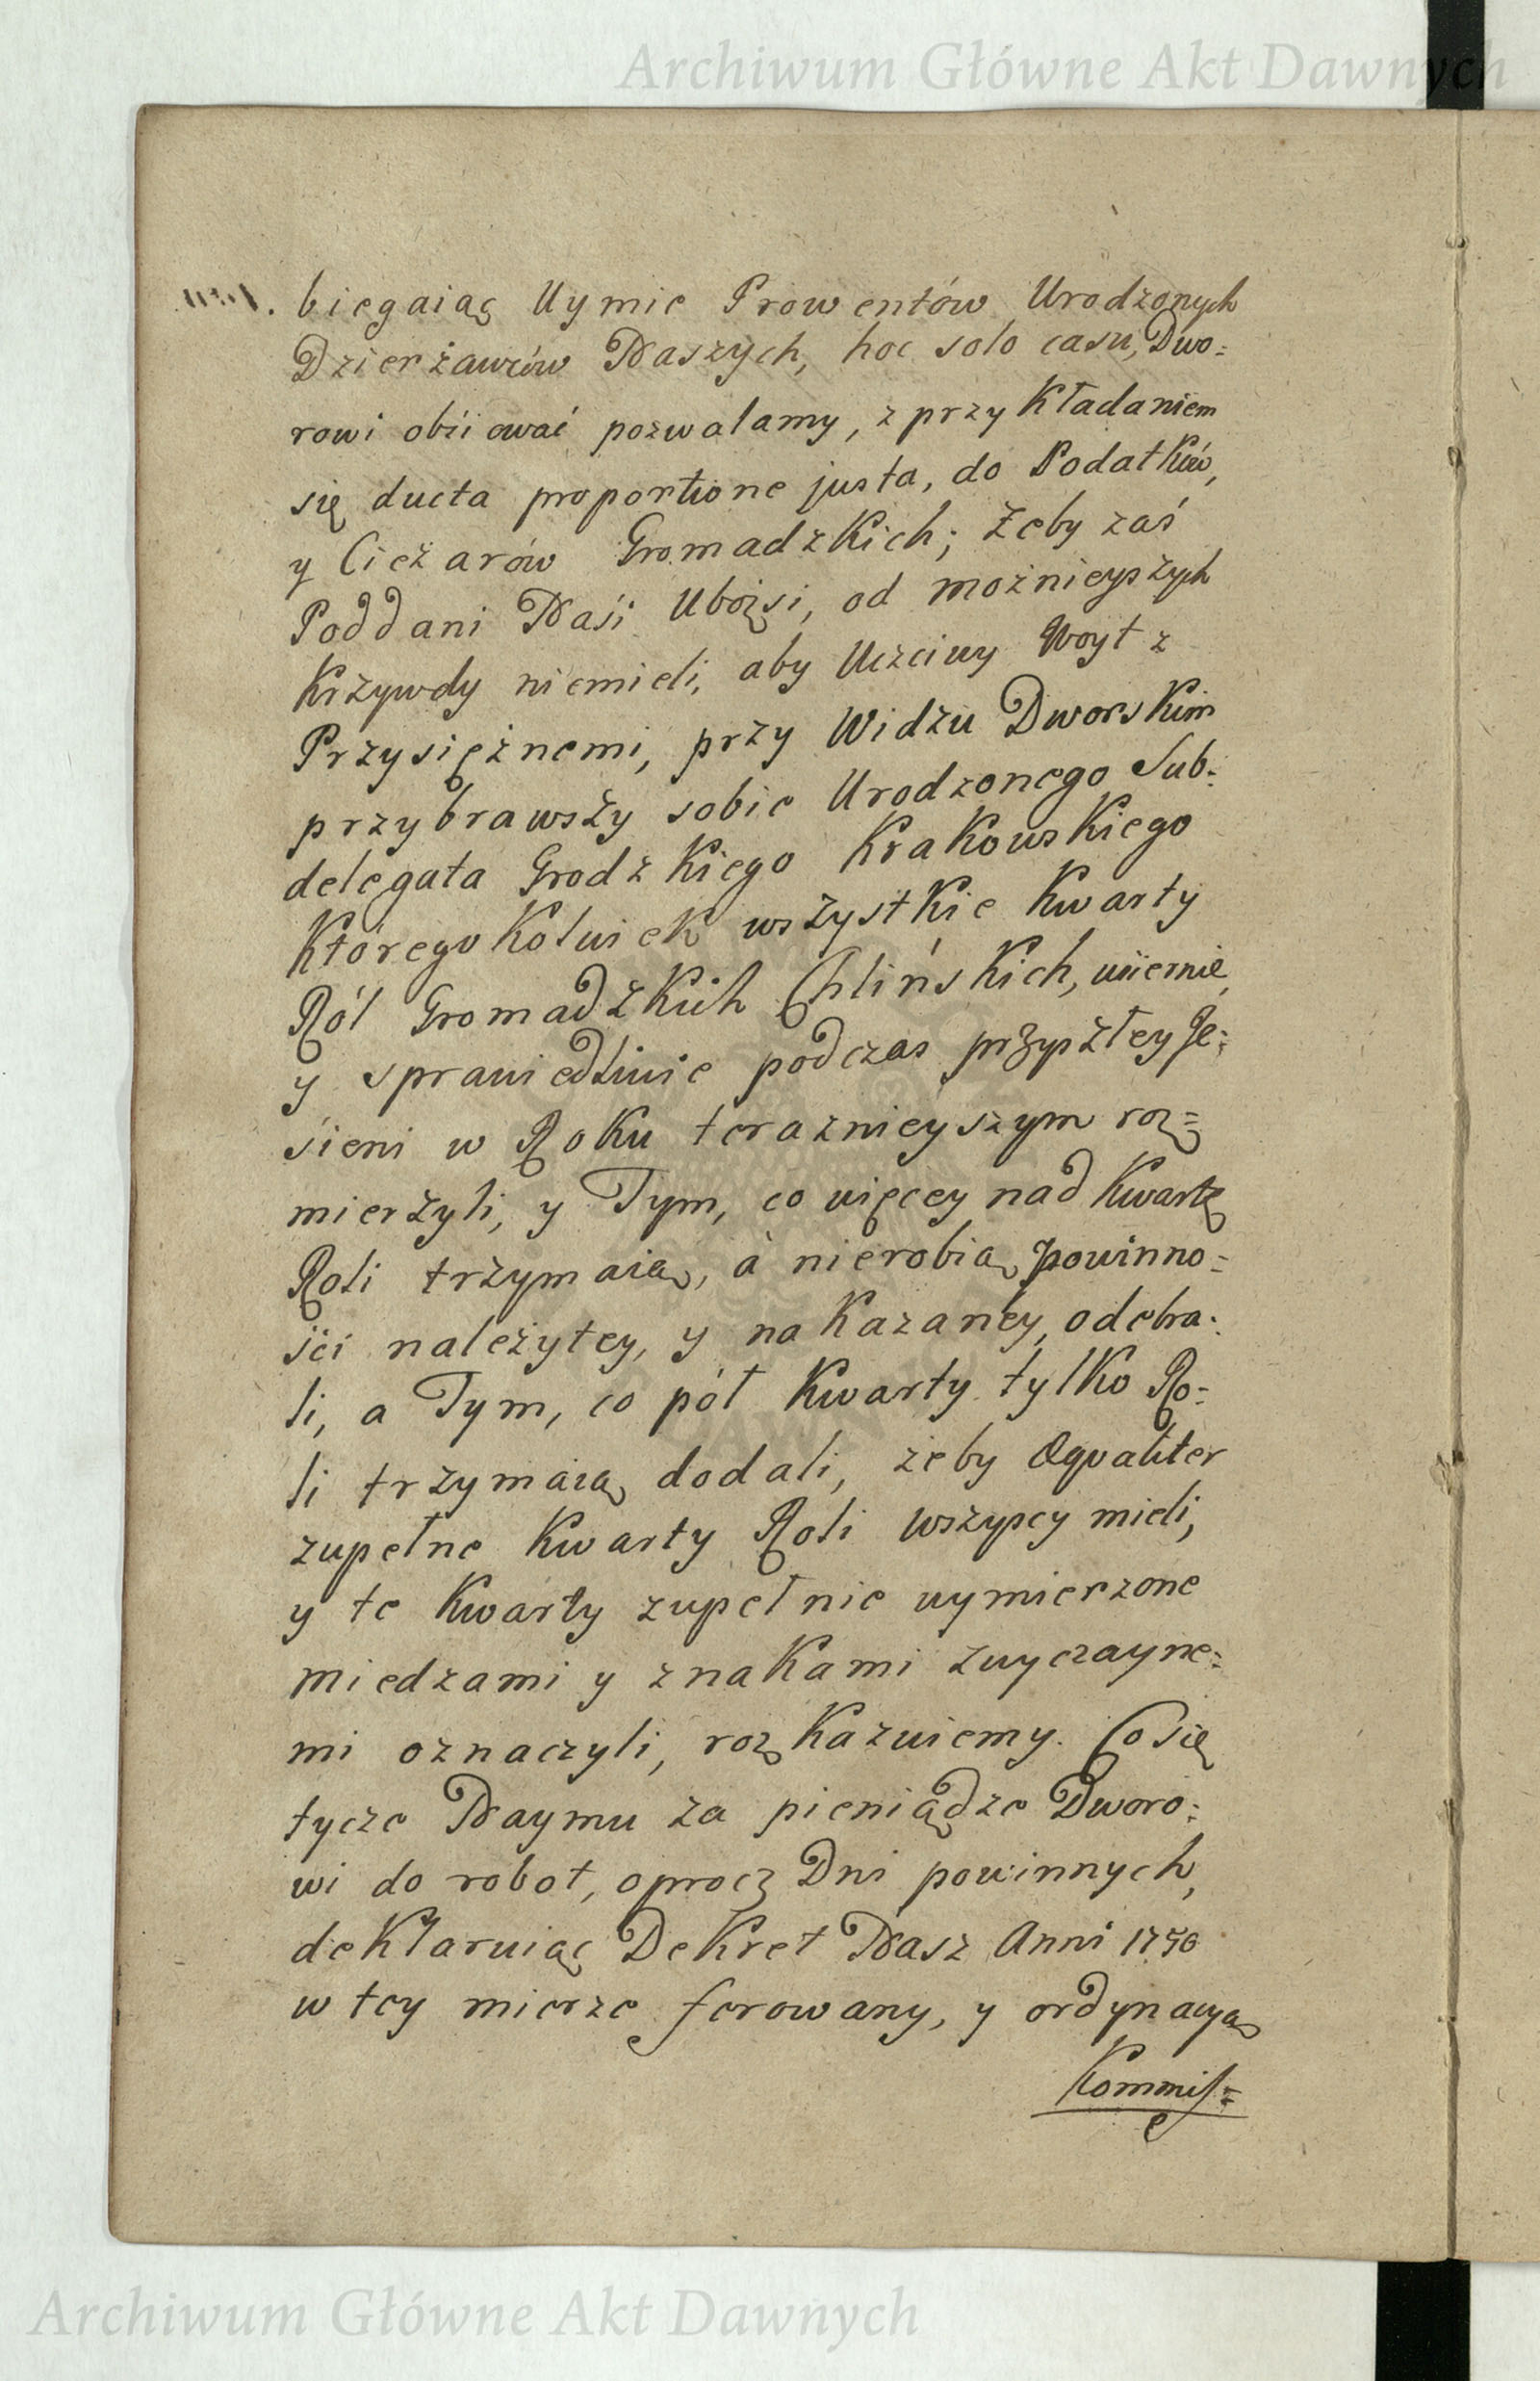 Archiwum Główne Akt Dawnych
biegaiąc Uymie Prowentów Urodzonych
Dzierżawców Naszych, hoc solo casu, Dwo=
rowi obiiować pozwalamy, z przykładaniem
się ducta proportione justa, do Podatków,
y Cieżarów Gromadzkich; Żeby zaś
Poddani Naśi Ubożsi, od możnieyszych
Krzywdy niemieli, aby Uczciwy Woyt z
Przysiężnemi, przy Widzu Dworskim
przybrawszy sobie Urodzonego Sub=
delegata Grodzkiego Krakowskiego
Któregokolwiek wszystkie Kwarty
Ról Gromadzkich Chlińskich, wiernie,
y sprawiedliwie podczas przyszłey Je=
śieni w Roku teraznieyszym roz=
mierzyli, y Tym, co więcey nad Kwartę
Roli trzymaią, à nierobią powinno=
ści należytey, y nakazaney, odebra=
li, a Tym, co pół Kwarty tylko Ro=
li trzymaią dodali, żeby Æqualiter
zupełne Kwarty Roli wszyscy mieli,
y te Kwarty zupełnie wymierzone
miedzami y znakami zwyczayne=
mi oznaczyli, rozkazuiemy. Co się
tycze Naymu za pieniądze Dworo=
wi do robot, oprocz Dni powinnych,
deklaruiąc Dekret Nasz Anni 1750
w tey mierze ferowany, y ordynacyą
Kommis=
Archiwum Główne Akt Dawnych